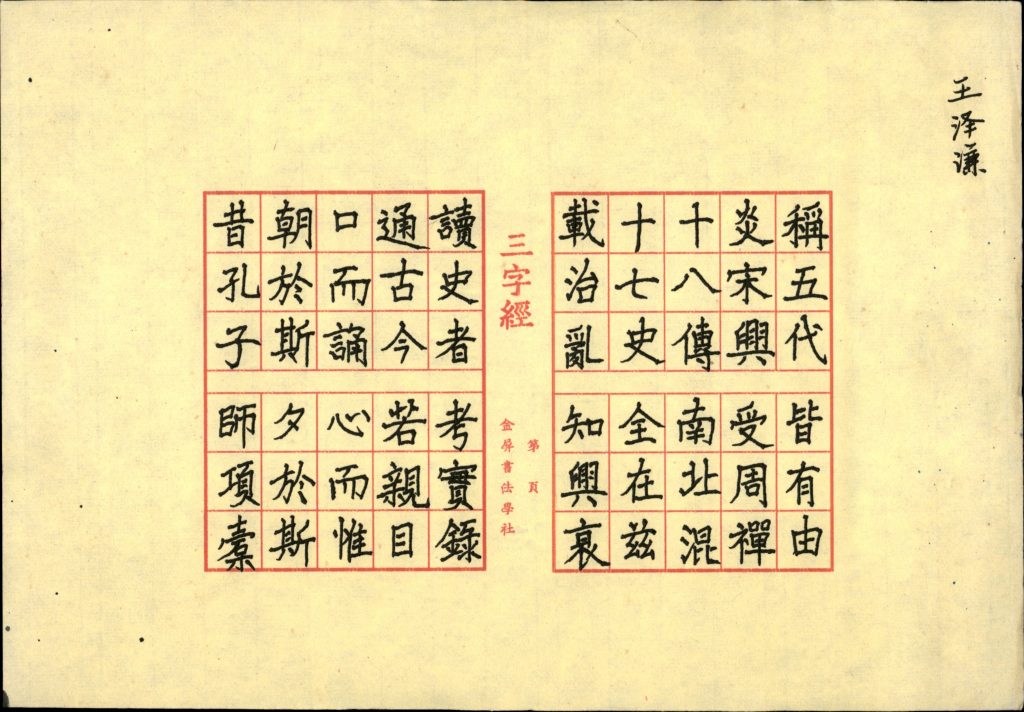 王泽濂
稱五代皆有由
炎宋興受周禪
十八傳南北混
十七史全在兹
載治亂知興衰
三字經
第 頁
金屏書法學社
讀史者考實錄
通古今若親目
口而誦心而惟
朝於斯夕於斯
昔孔子師項橐